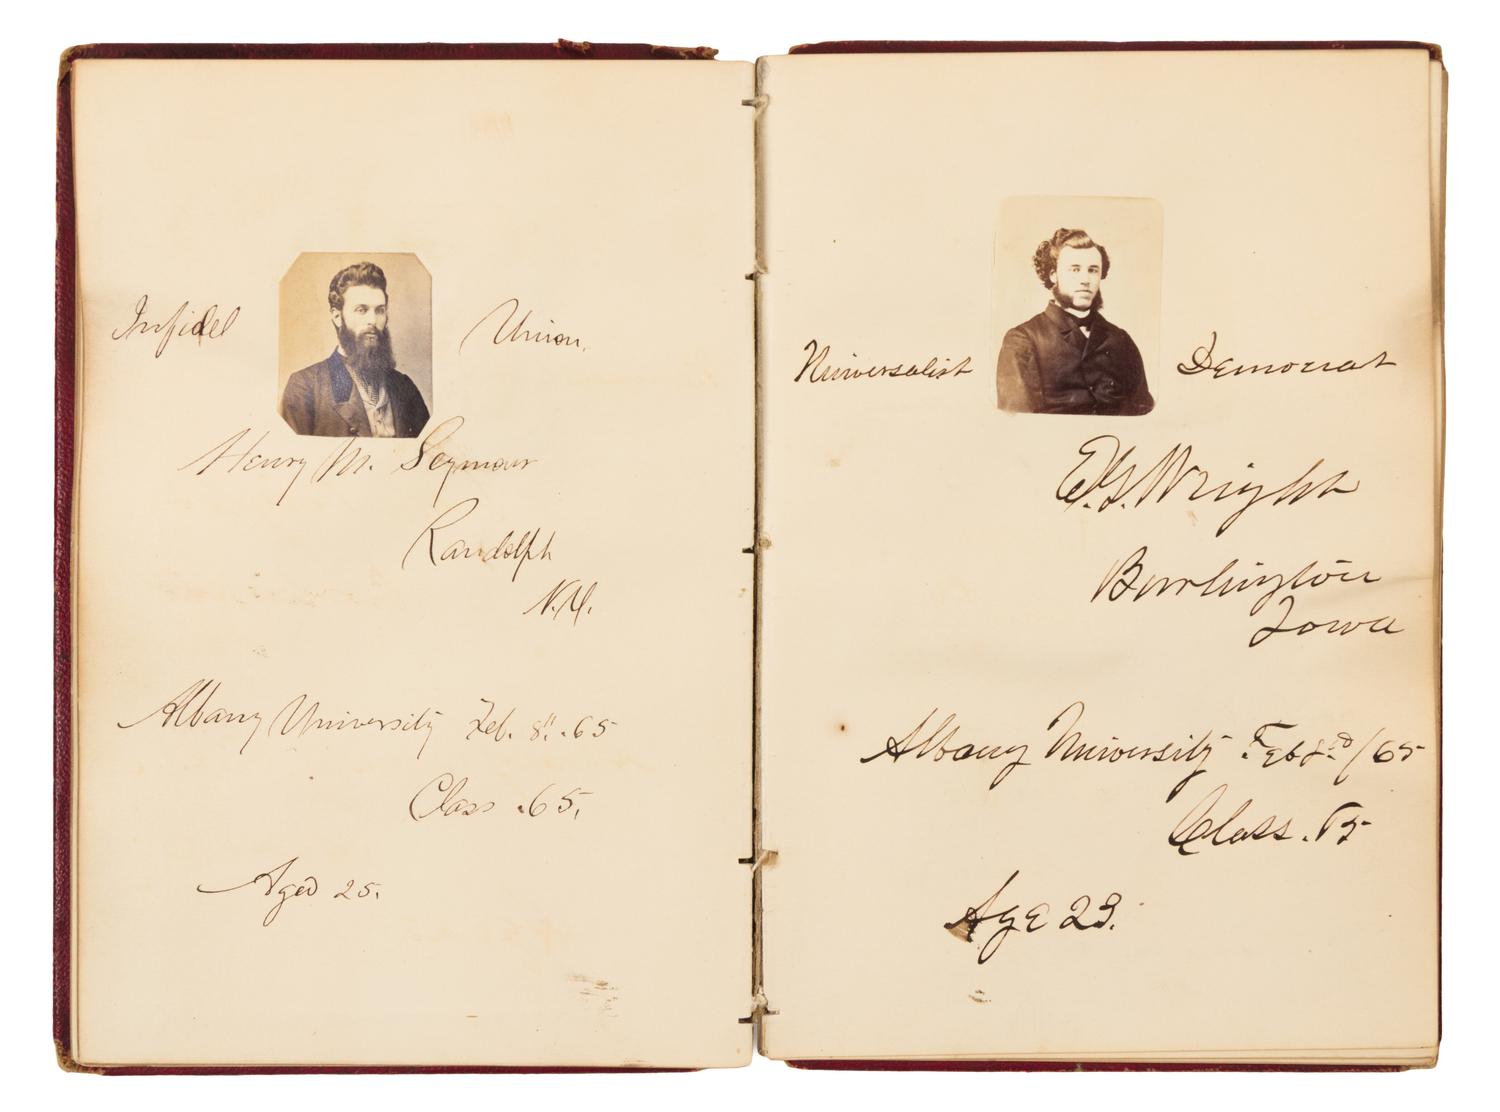 Infidel Union.
Henry M. Seymour
Randolph
N.Y.
Albany University Feb. 8". .65
Class .65.
Aged 25.
Universalist Democrat
Wright
Burlington
Iowa
Albany University Feb /65
Class .65
Age 23.